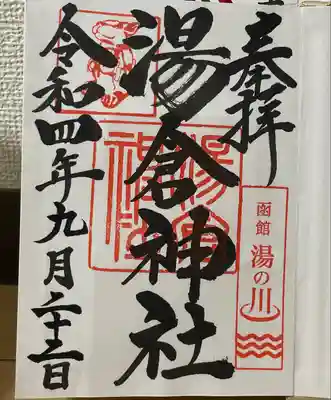 奉拝
函館
湯の川
湯倉神社
湯倉神社
令和四年九月二十二日